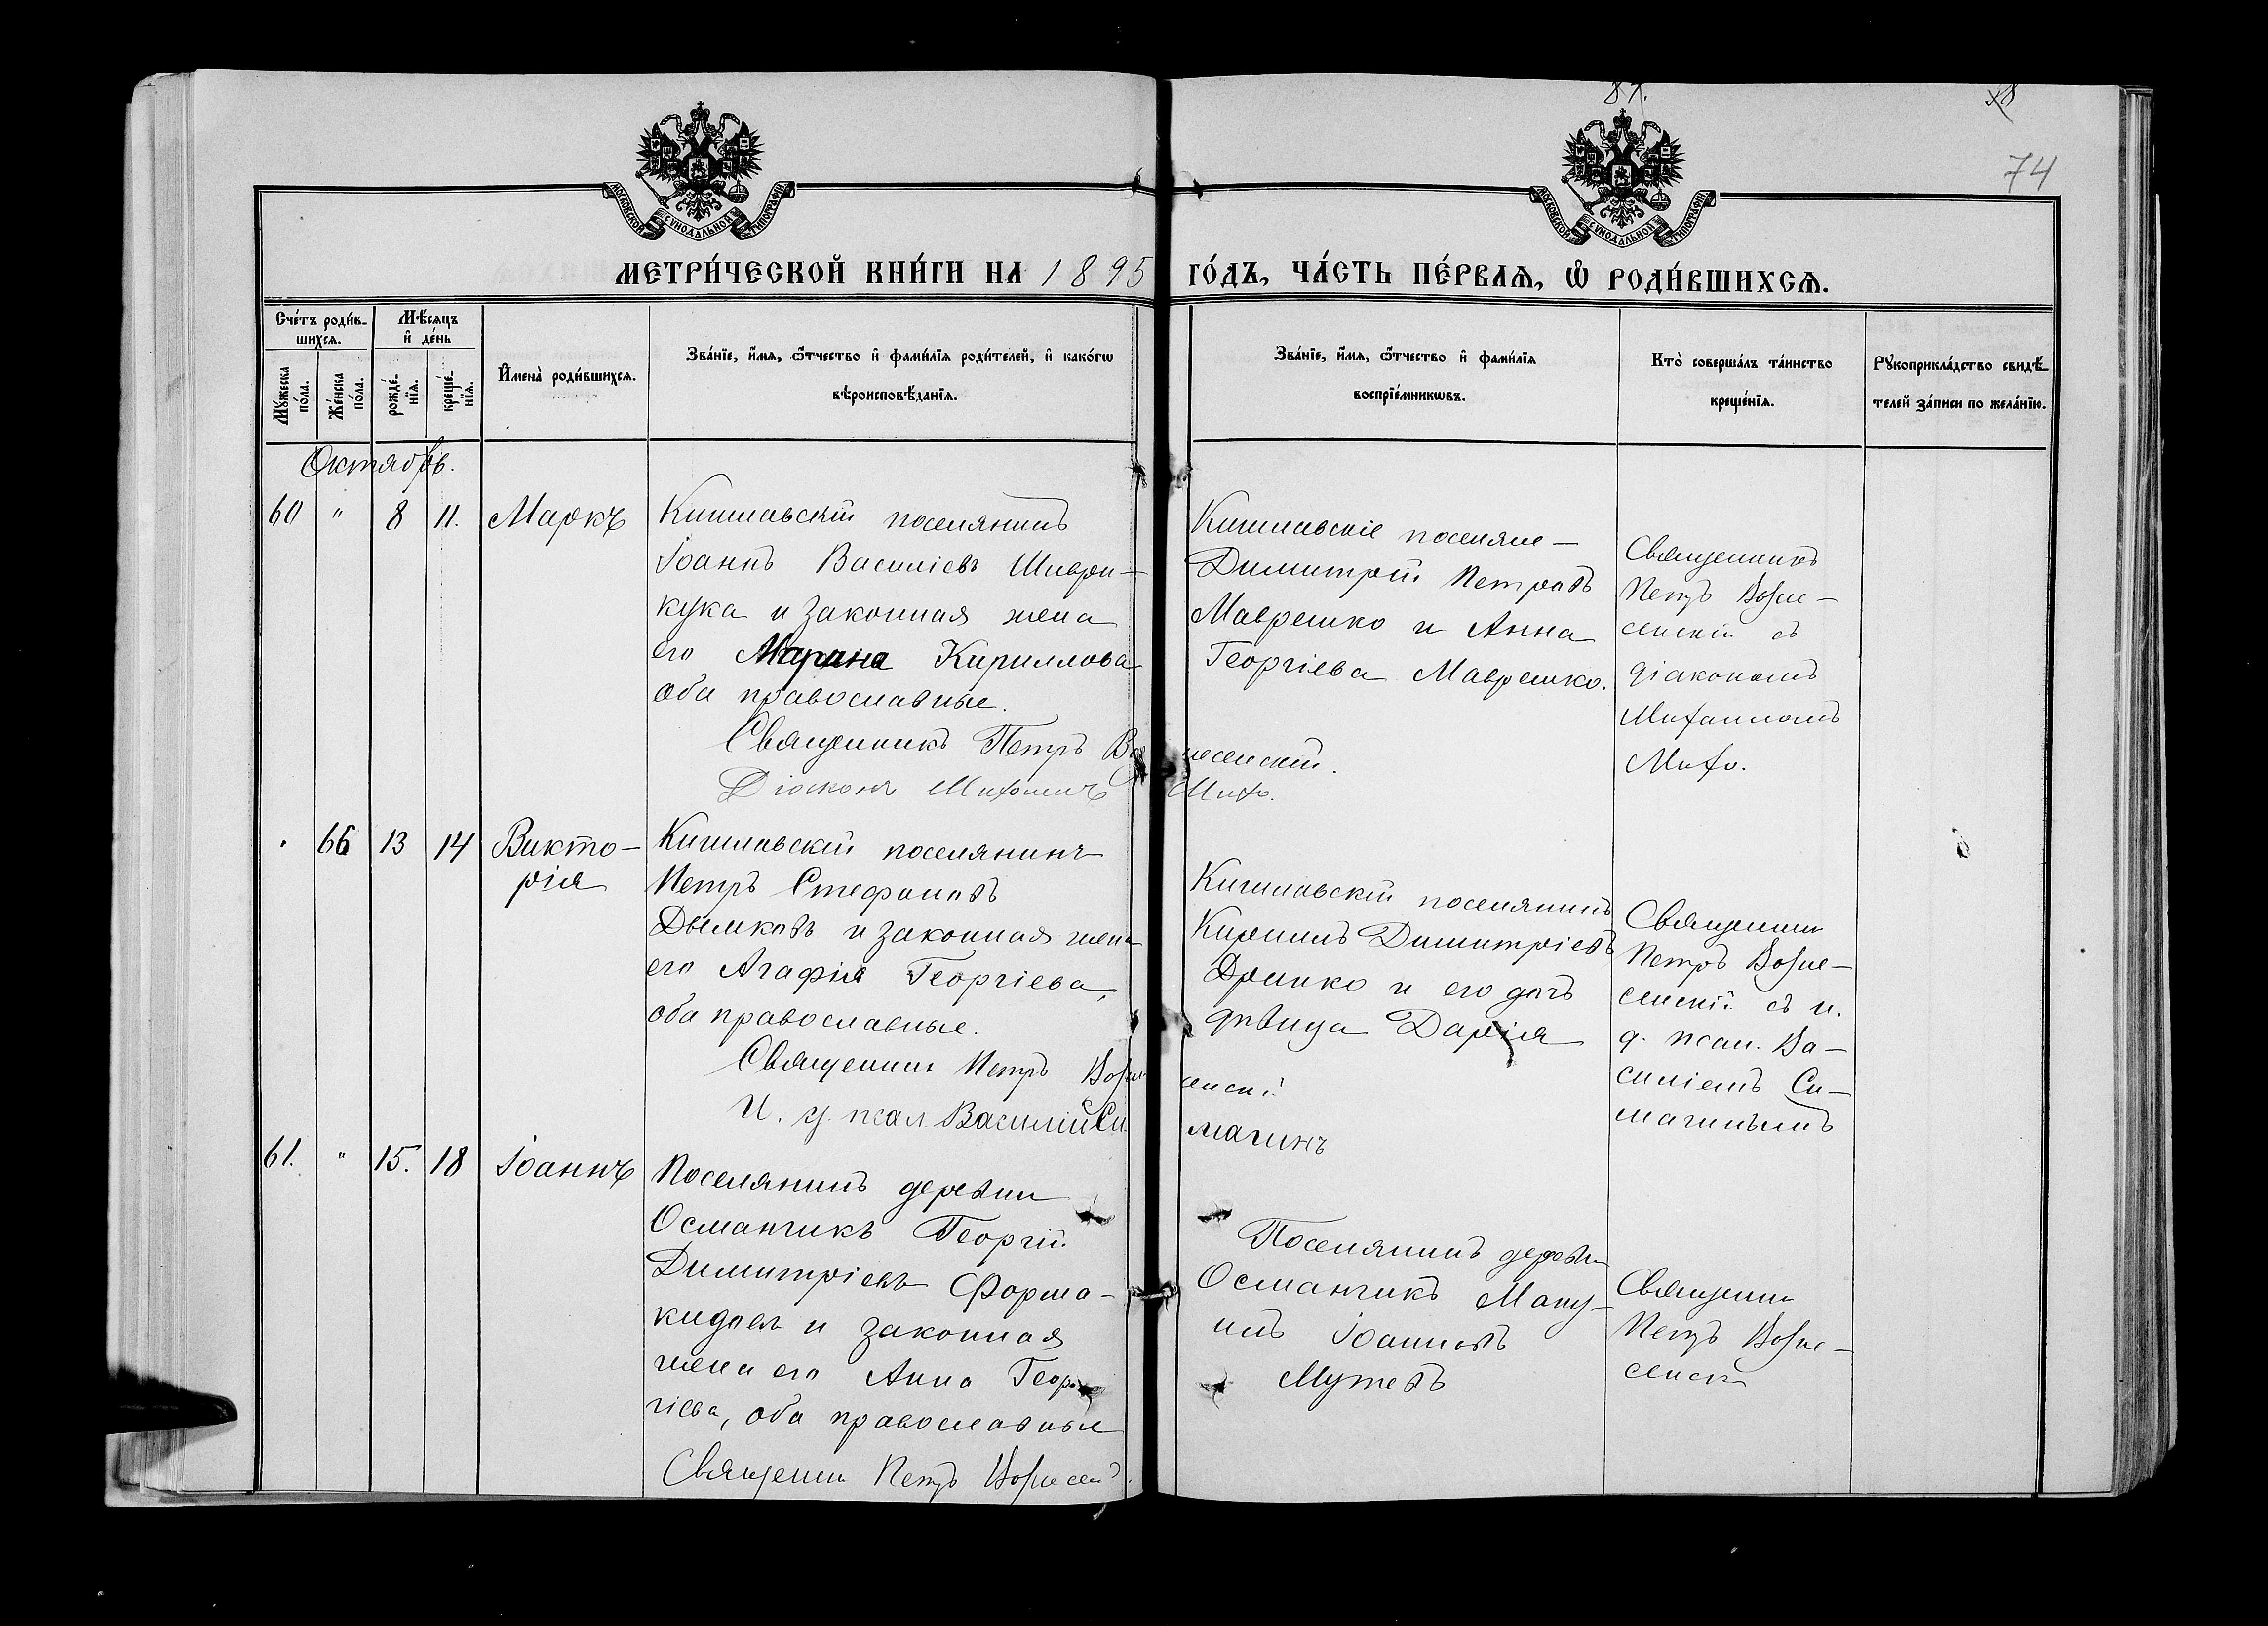 81.
58
74
МОСКОВСКОЙ СѴНОДАЛЬНОЙ ТИПОГРАФІИ
МОСКОВСКОЙ СѴНОДАЛЬНОЙ ТИПОГРАФІИ
МЕТРИ́ЧЕСКОЙ КНИ́ГИ НА 1895 ГО́ДЪ, ЧА́СТЬ ПЕ́РВАЯ, Ѽ РОДИ́ВШИХСѦ.
Сче́тъ роди́в-
шихсѧ.
Мѣ́сѧцъ
и҆ де́нь
Мꙋ́жеска
по́ла.
Же́нска
по́ла.
рожде́-
нїѧ.
креще́-
нїѧ.
И҆мена̀ роди́вшихсѧ.
Зва́нїе, и҆́мѧ, ѻ҆́тчество и҆ фами́лїѧ роди́телей, и҆ како́гѡ
вѣроисповѣ́данїѧ.
Зва́нїе, и҆́мѧ, ѻ҆́тчество и҆ фами́лїѧ
воспрїе́мникѡвъ.
Кто̀ соверша́лъ та́инство
креще́нїѧ.
Рꙋкоприкла́дство свидѣ́-
телей за́писи по жела́нїю.
Октябрь.
60 " 8 11. Маркъ
Кишлавскій поселянинъ
Іоаннъ Василіевъ Шиври-
кука и законная жена
его Марина Кириллова
оба православные.
Священникъ Петръ Вознесенскій.
Діаконъ Михаилъ Михо.
Кишлавскіе поселяне-
Димитрій Петровъ
Маврешко и Анна
Георгіева Маврешко.
Священникъ
Петръ Возне-
сенскій съ
діакономъ
Михаиломъ
Михо.
66 13 14 Викто-
рія
Кишлавскій поселянинъ
Петръ Стефановъ
Дымковъ и законная жена
его Агафія Георгіева,
оба православные.
Священникъ Петръ Вознесенскій
И. д. псал. Василій Симагинъ
Кишлавскій поселянинъ
Кириллъ Димитріевъ
Дринко и его дочь
дѣвица Дарія
Священник
Петръ Возне-
сенскій съ и.
д. псал. Ва-
силіемъ Си-
магинымъ
61. " 15. 18 Іоаннъ
Поселянинъ деревни
Османчикъ Георгій
Димитріевъ Форма-
кидовъ и законная
жена его Анна Геор-
гіева, оба православные
Священник Петръ Вознесен
Поселянинъ деревни
Османчикъ Ману-
илъ Іоанновъ
Мутевъ
Священник
Петръ Возне-
сенск